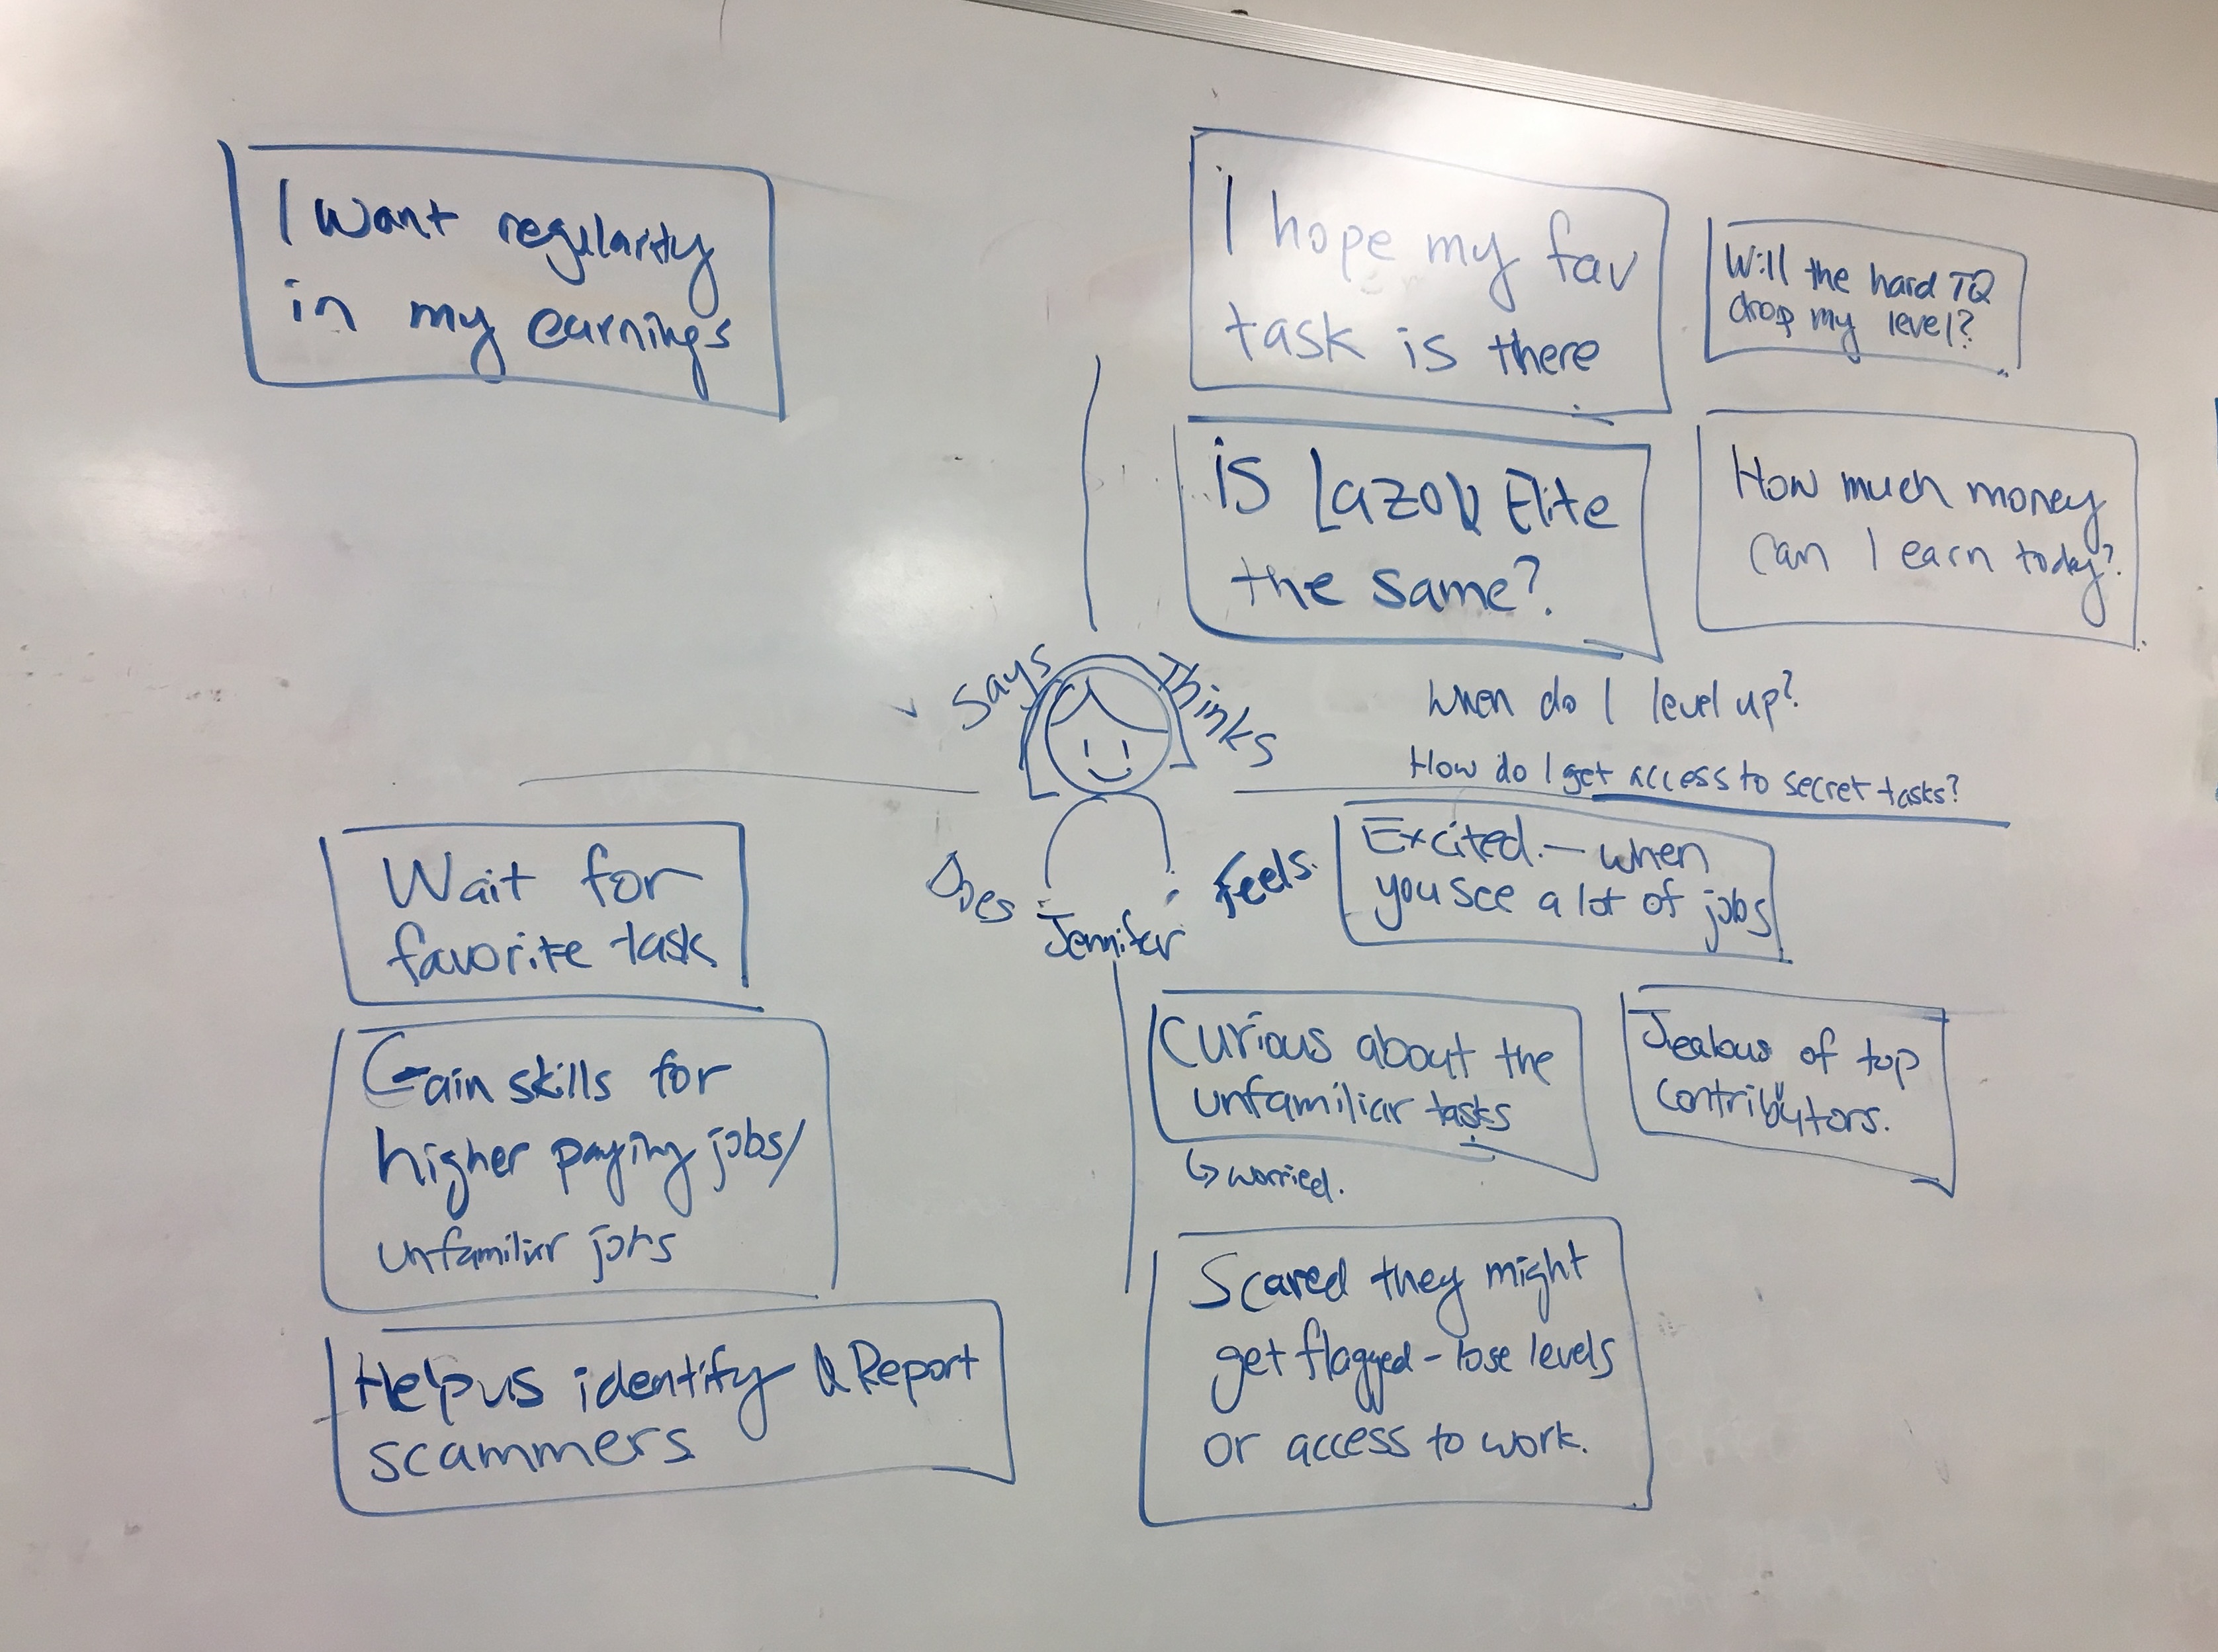 I want regularity
in my earnings
I hope my fav
task is there
Will the hard TQ
drop my level?
is Elite
the same?
How much money
can I earn today?
When do I level up?
How do I get access to secret tasks?
Says
Thinks
Does
Feels.
Jennifer
Wait for
favorite task
Gain skills for
higher paying jobs/
unfamiliar jobs
Help us identify & Report
scammers
Excited. — when
you see a lot of jobs
Curious about the
unfamiliar tasks
↳ worried.
Jealous of top
contributors.
Scared they might
get flagged - lose levels
or access to work.